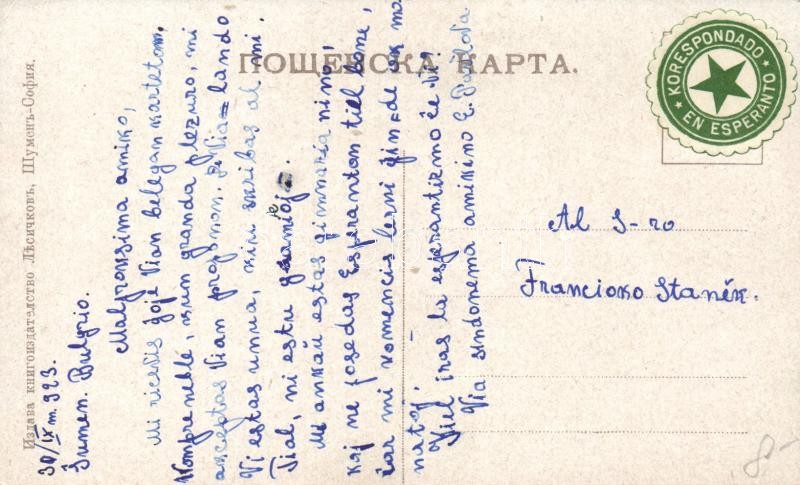 ПОЩЕНСКА КАРТА.
★ KORESPONDADO ★
EN ESPERANTO
Издава книгоиздателство Лѣсичковъ, Шуменъ-София.
30/IX m. 923.
Ŝumen. Bulgrio.
Malproksima amiko,
Mi ricevis ĝoje Vian belegan karteton,
Kompreneble, kun granda plezuro, mi
akceptas Vian proponon. Via lando
Vi estas unua, kiu skribas al mi.
Tial, ni estu
Mi ankaŭ estas gimnazianino,
kaj ne posedas Esperanton tiel bone,
ĉar mi komencis lerni ĝin de ok mo
natoj.
Kiel iras la esperantismo ĉe Vi?
Via sindonema amikino E. Pavlova
Al S-ro
Francisko Staněk.
8-